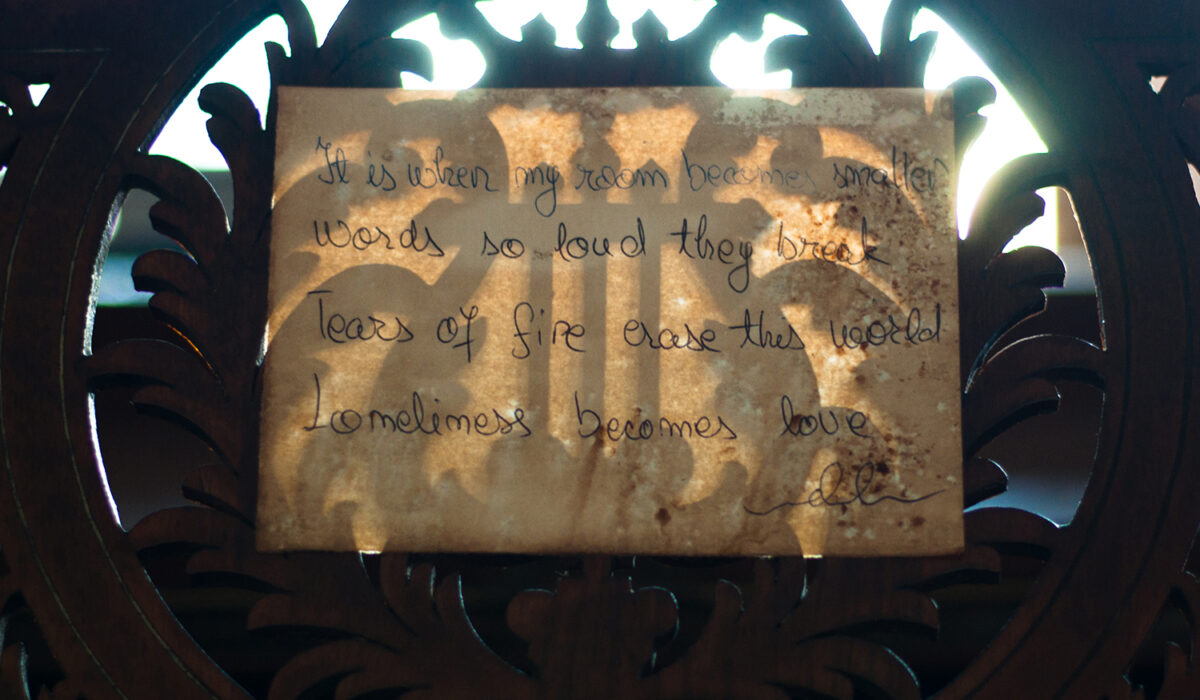 It is when my room becomes smaller
words so loud they break
Tears of fire erase this world
Loneliness becomes love